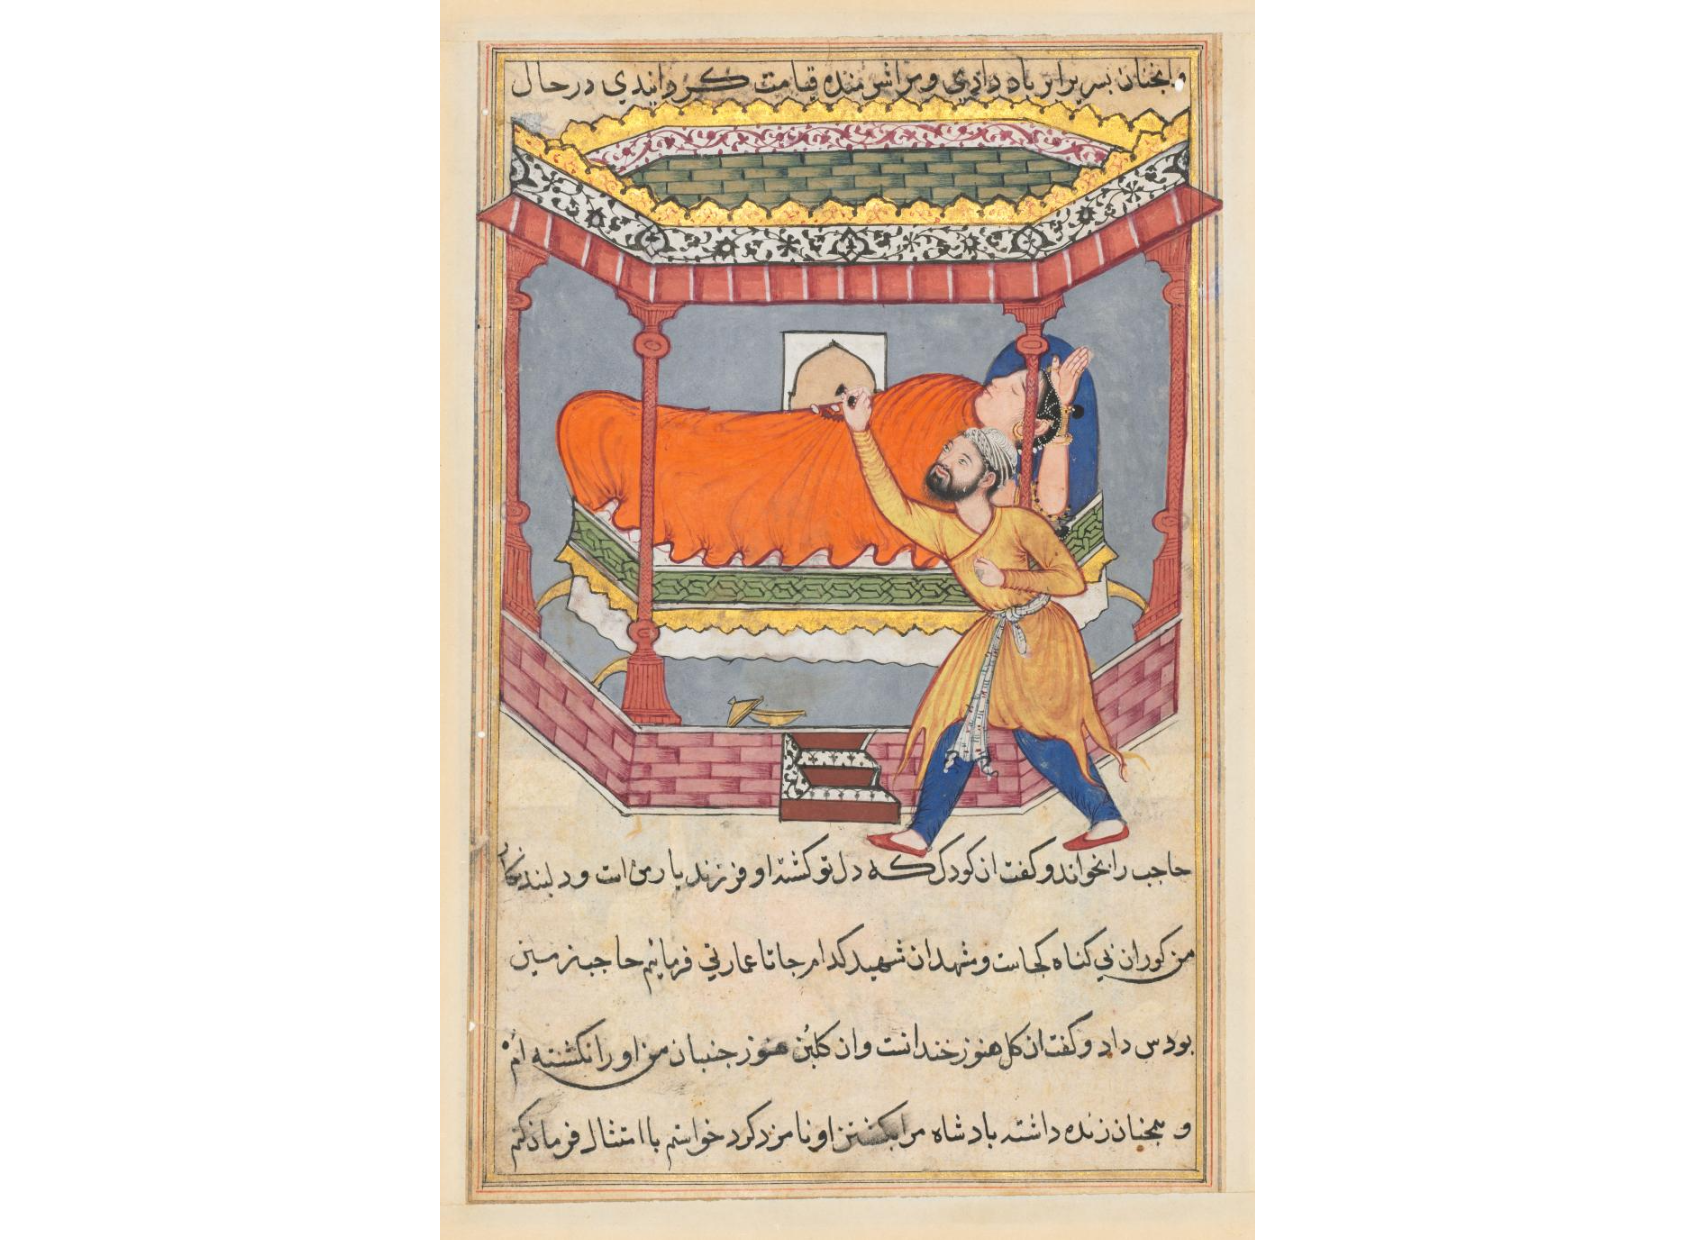 وانجنان بسر برابر باد دادي و مرا شرمنده قيامت كردانيدي در حال
حاجب را بخواند و كفت ان كودك كه دل تو كشته او فرزند يار من است و دلبند
من كور ان بي كناه كجاست و مشهد ان شهيد كدام جا تا عمارتي فرمايم حاجب زمين
بوس داد و كفت ان كل هنوز خندانست و ان كلبن هنوز جنبان من او را نكشته ام
و همجنان زنده داشته بادشاه مرا بكشتن او نامزد كرد خواستم با امتثال فرمان كنم